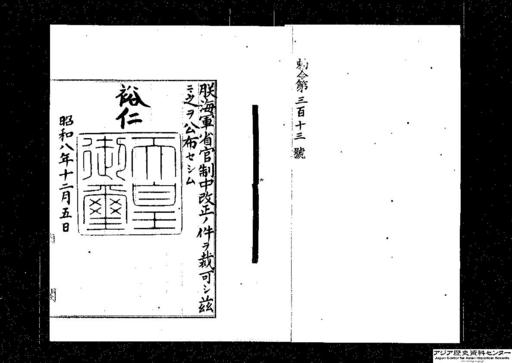 勅令第三百十三號
朕海軍省官制中改正ノ件ヲ裁可シ茲
ニ之ヲ公布セシム
裕仁
天皇
御璽
昭和八年十二月五日
内閣
アジア歴史資料センター
Japan Center for Asian Historical Records